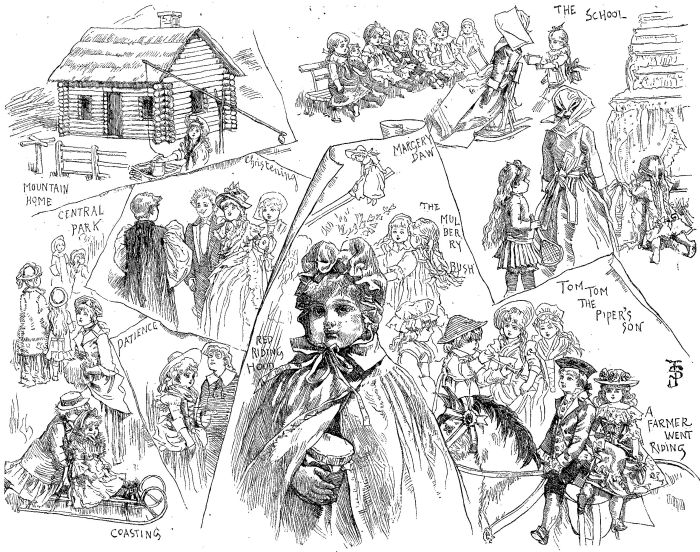 THE SCHOOL
MARGERY
DAW
Christening
MOUNTAIN
HOME
CENTRAL
PARK
THE
MUL
BER
RY
BUSH
TOM TOM
THE
PIPER'S
SON
PATIENCE
RED
RIDING
HOOD
A
FARMER
WENT
RIDING
COASTING